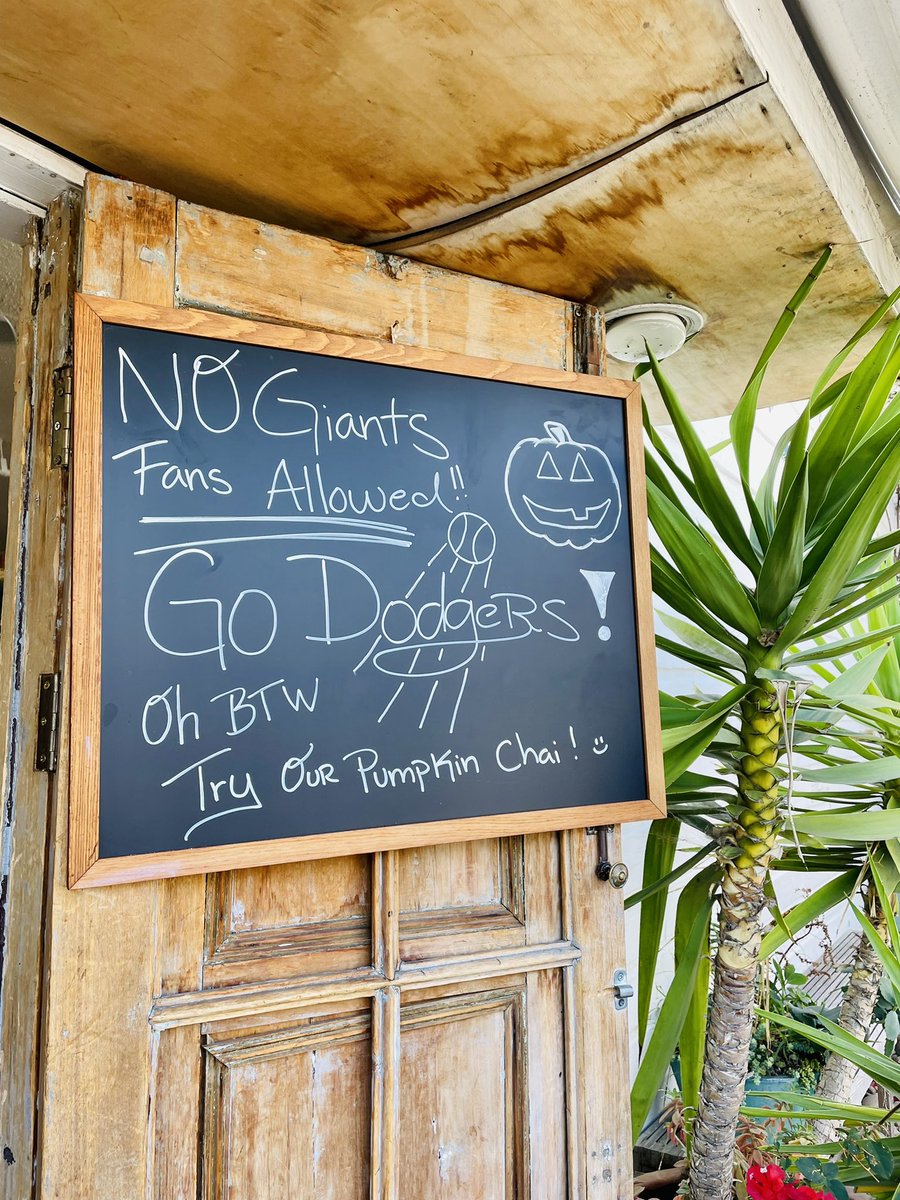 NO Giants
Fans Allowed!!
Go Dodgers!
Oh BTW
Try Our Pumpkin Chai!